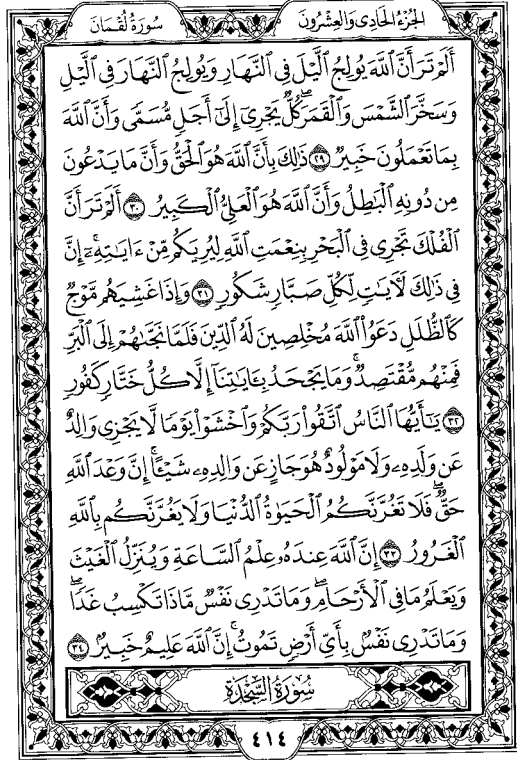 سُورَةُ لُقْمَانَ الجُزْءُ الحَادِي وَالعِشْرُونَ
أَلَمْ تَرَ أَنَّ ٱللَّهَ يُولِجُ ٱلَّيْلَ فِى ٱلنَّهَارِ وَيُولِجُ ٱلنَّهَارَ فِى ٱلَّيْلِ
وَسَخَّرَ ٱلشَّمْسَ وَٱلْقَمَرَۖ كُلٌّ يَجْرِىٓ إِلَىٰٓ أَجَلٍ مُّسَمًّى وَأَنَّ ٱللَّهَ
بِمَا تَعْمَلُونَ خَبِيرٌ ٢٩ ذَٰلِكَ بِأَنَّ ٱللَّهَ هُوَ ٱلْحَقُّ وَأَنَّ مَا يَدْعُونَ
مِن دُونِهِ ٱلْبَٰطِلُ وَأَنَّ ٱللَّهَ هُوَ ٱلْعَلِىُّ ٱلْكَبِيرُ ٣٠ أَلَمْ تَرَ أَنَّ
ٱلْفُلْكَ تَجْرِى فِى ٱلْبَحْرِ بِنِعْمَتِ ٱللَّهِ لِيُرِيَكُم مِّنْ ءَايَٰتِهِۦٓۚ إِنَّ
فِى ذَٰلِكَ لَءَايَٰتٍ لِّكُلِّ صَبَّارٍ شَكُورٍ ٣١ وَإِذَا غَشِيَهُم مَّوْجٌ
كَٱلظُّلَلِ دَعَوُا۟ ٱللَّهَ مُخْلِصِينَ لَهُ ٱلدِّينَ فَلَمَّا نَجَّىٰهُمْ إِلَى ٱلْبَرِّ
فَمِنْهُم مُّقْتَصِدٌۚ وَمَا يَجْحَدُ بِـَٔايَٰتِنَآ إِلَّا كُلُّ خَتَّارٍ كَفُورٍ
٣٢ يَٰٓأَيُّهَا ٱلنَّاسُ ٱتَّقُوا۟ رَبَّكُمْ وَٱخْشَوْا۟ يَوْمًا لَّا يَجْزِى وَالِدٌ
عَن وَلَدِهِۦ وَلَا مَوْلُودٌ هُوَ جَازٍ عَن وَالِدِهِۦ شَيْـًٔاۚ إِنَّ وَعْدَ ٱللَّهِ
حَقٌّۖ فَلَا تَغُرَّنَّكُمُ ٱلْحَيَوٰةُ ٱلدُّنْيَا وَلَا يَغُرَّنَّكُم بِٱللَّهِ
ٱلْغَرُورُ ٣٣ إِنَّ ٱللَّهَ عِندَهُۥ عِلْمُ ٱلسَّاعَةِ وَيُنَزِّلُ ٱلْغَيْثَ
وَيَعْلَمُ مَا فِى ٱلْأَرْحَامِۖ وَمَا تَدْرِى نَفْسٌ مَّاذَا تَكْسِبُ غَدًاۖ
وَمَا تَدْرِى نَفْسٌۢ بِأَىِّ أَرْضٍ تَمُوتُۚ إِنَّ ٱللَّهَ عَلِيمٌ خَبِيرٌۢ ٣٤
سُورَةُ السَّجْدَةِ
٤١٤